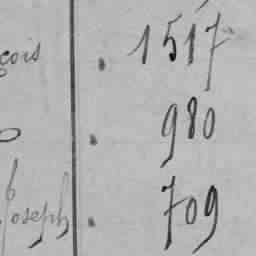 çois . 1517
. 980
Joseph . 709